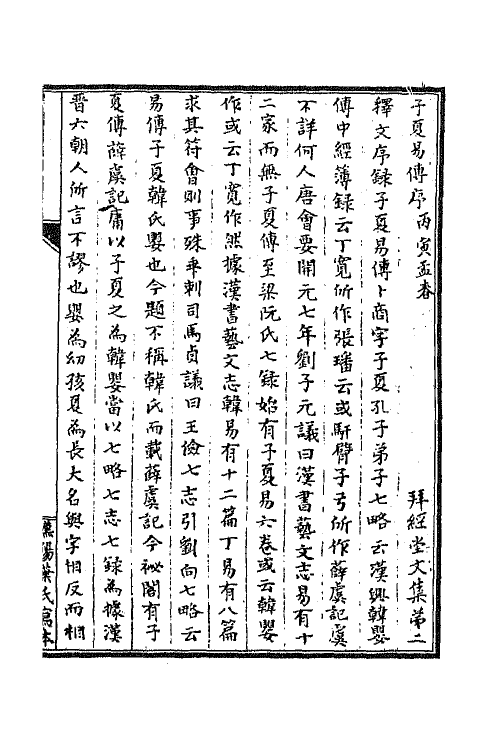 子夏易傳序丙寅孟春　拜經堂文集第二
釋文序録子夏易傳卜商字子夏孔子弟子七略云漢興韓嬰
傳中經簿録云丁寬所作張璠云或馯臂子弓所作薛虞記虞
不詳何人唐會要開元七年劉子元議曰漢書藝文志易有十
二家而無子夏傳至梁阮氏七録始有子夏易六卷或云韓嬰
作或云丁寬作然據漢書藝文志韓易有十二篇丁易有八篇
求其符會則事殊乖剌司馬貞議曰王儉七志引劉向七略云
易傳子夏韓氏嬰也今題不稱韓氏而載薛虞記今祕閣有子
夏傳薛虞記庸以子夏之為韓嬰當以七略七志七録為據漢
晉六朝人所言不謬也嬰為幼孩夏為長大名與字相反而相
葉氏寫本